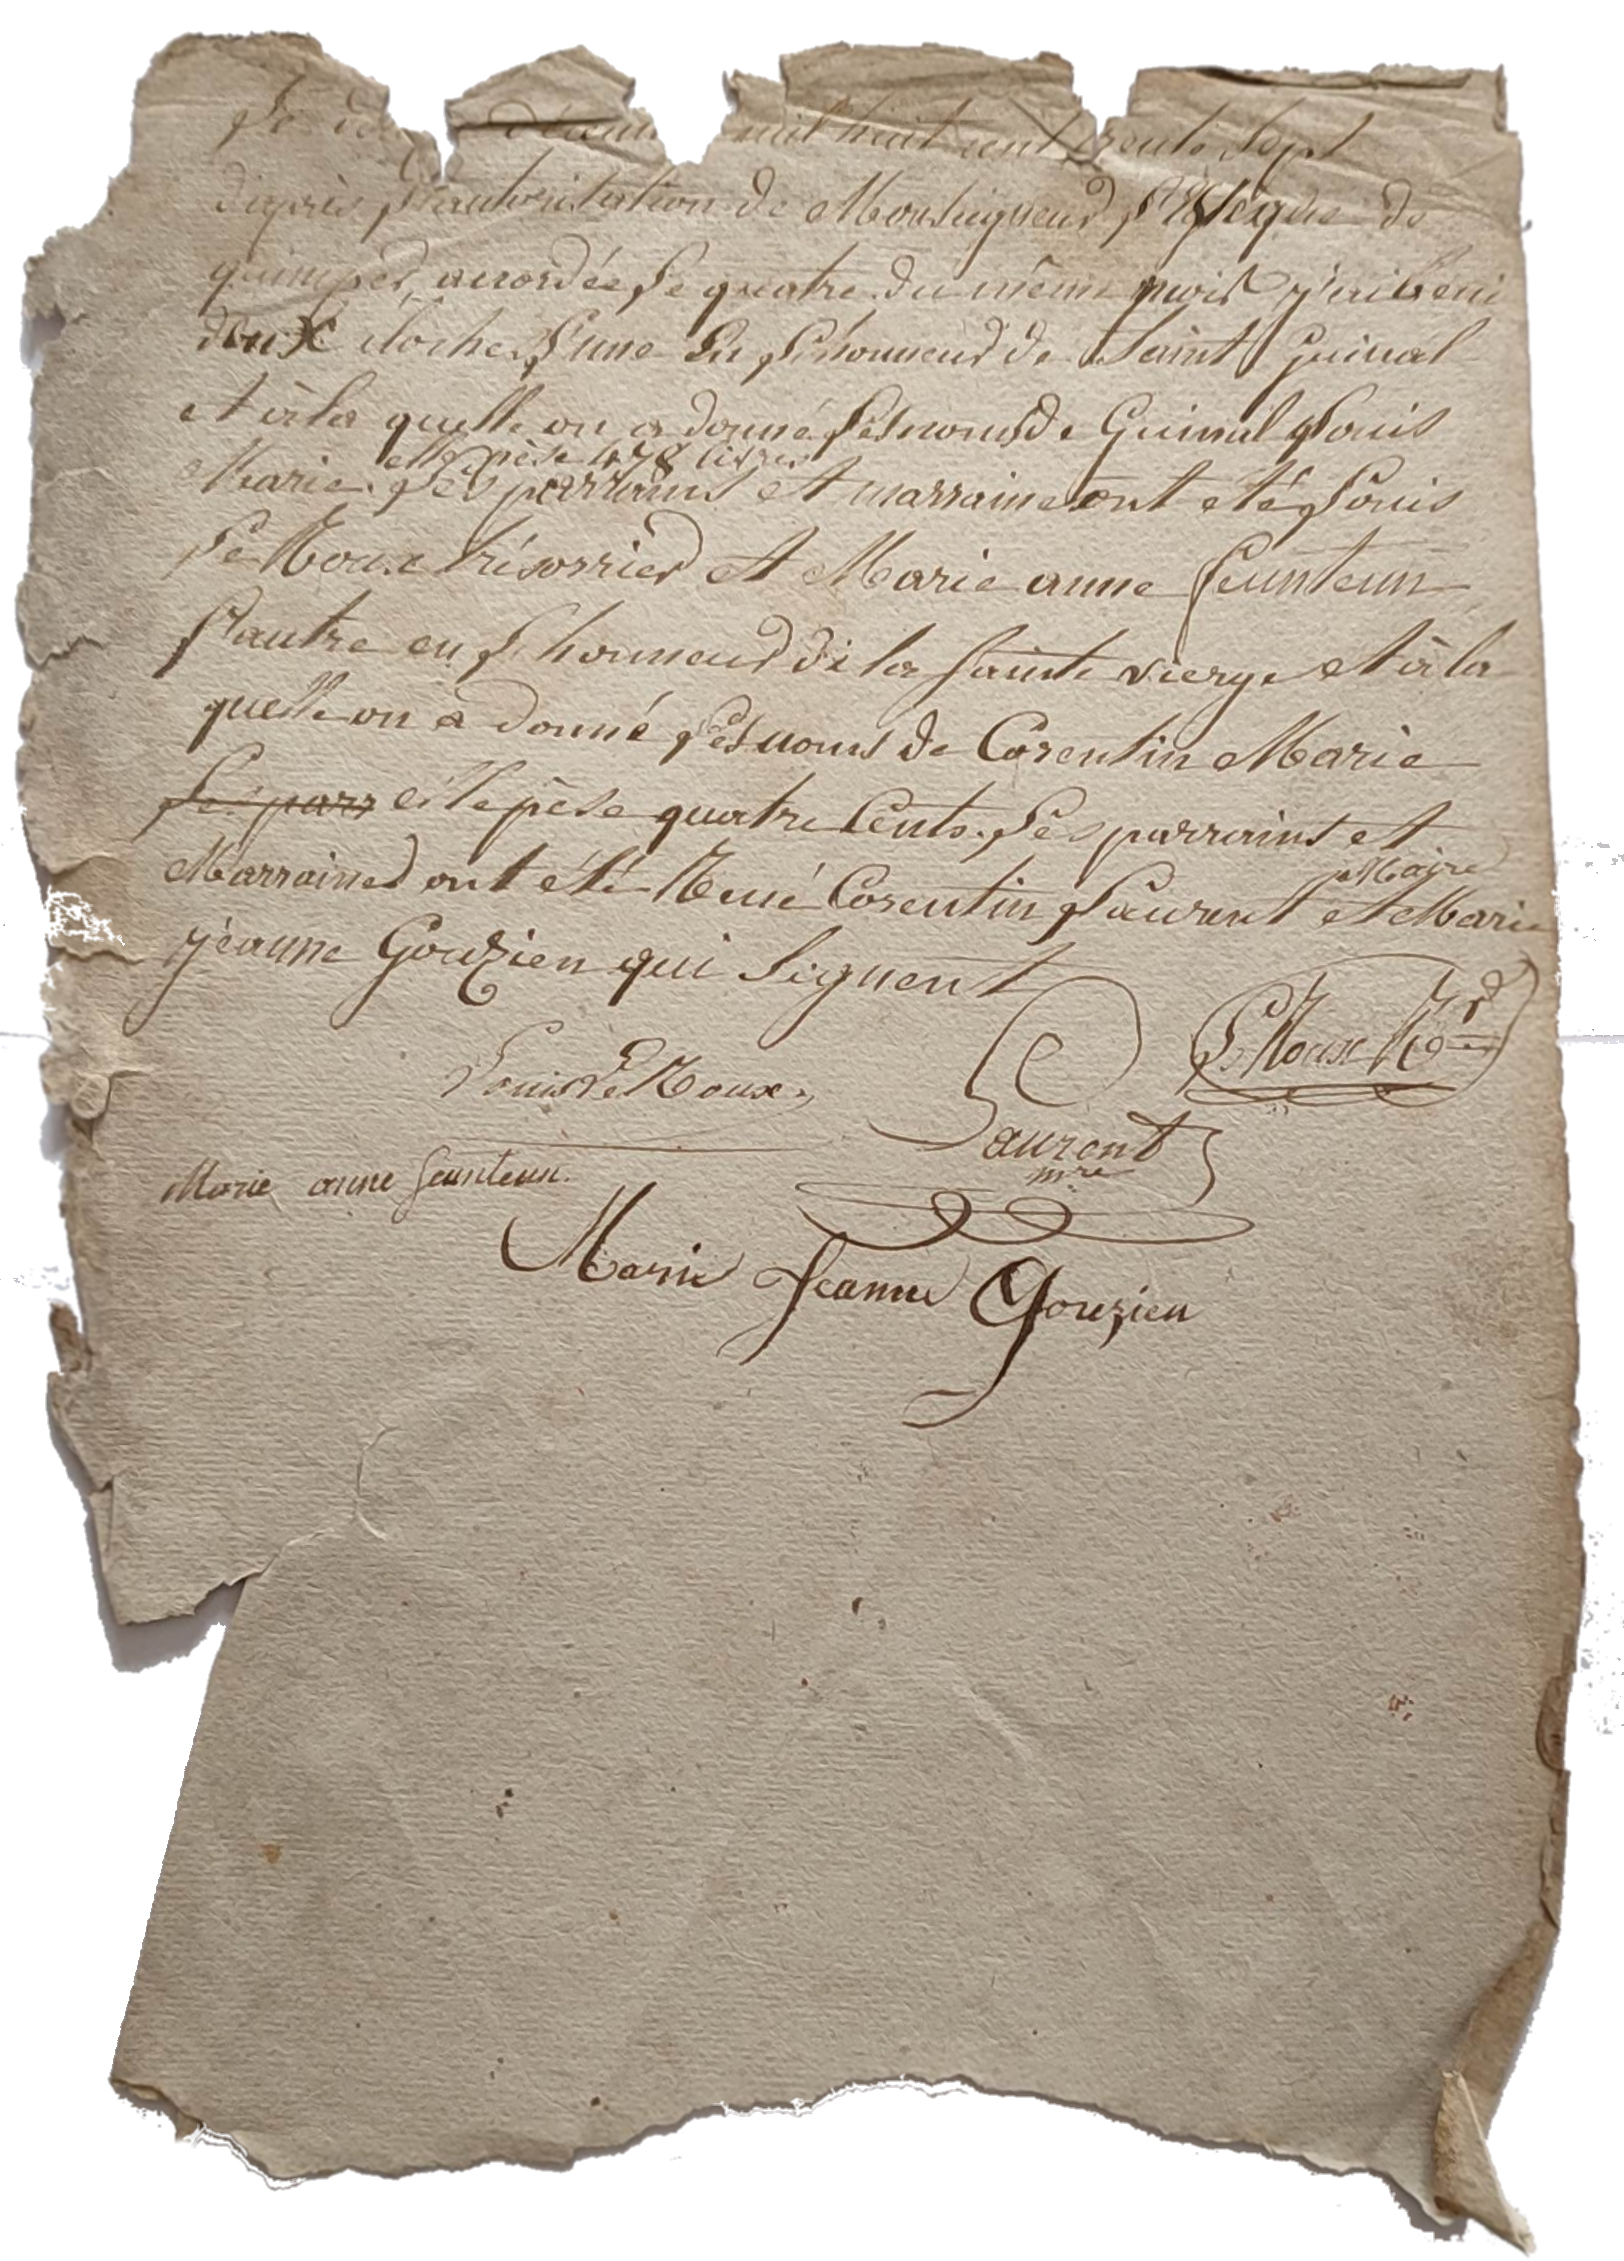 Le mil huit cent trente sept
d'après l'autorisation de Monseigneur l'Evêque de
quimper, accordée le quatre du même mois j'ai beni
deux cloches l'une en l'honneur de Saint Guinal
et à la quelle on a donné les noms de Guinal Louis
elle pèse 478 livres
Marie. Les parrains et marraine ont eté Louis
Le Roux trésorrier et Marie anne feunteun
l'autre en l'honneur de la sainte vierge et à la
quelle on a donné les noms de Corentin Marie
Les parr elle pèse quatre Cents. Les parrains et
Maire
Marraines ont été René Corentin Laurent et Marie
jeanne Gouzien qui signent
Le Roux Rr
Louis Le Roux
Laurent
mre
Marie anne feunteun.
Marie Jeanne Gouzien